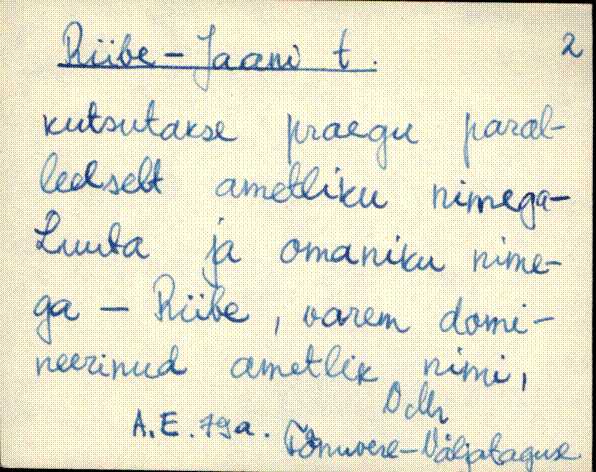 Riibe-Jaani t. 2
kutsutakse praegu paral-
leelselt ametliku nimega-
Luuta ja omaniku nime-
ga - Riibe, varem domi-
neerinud ametlik nimi,
A.E. 79a.
Tõnuvere-Väljataguse